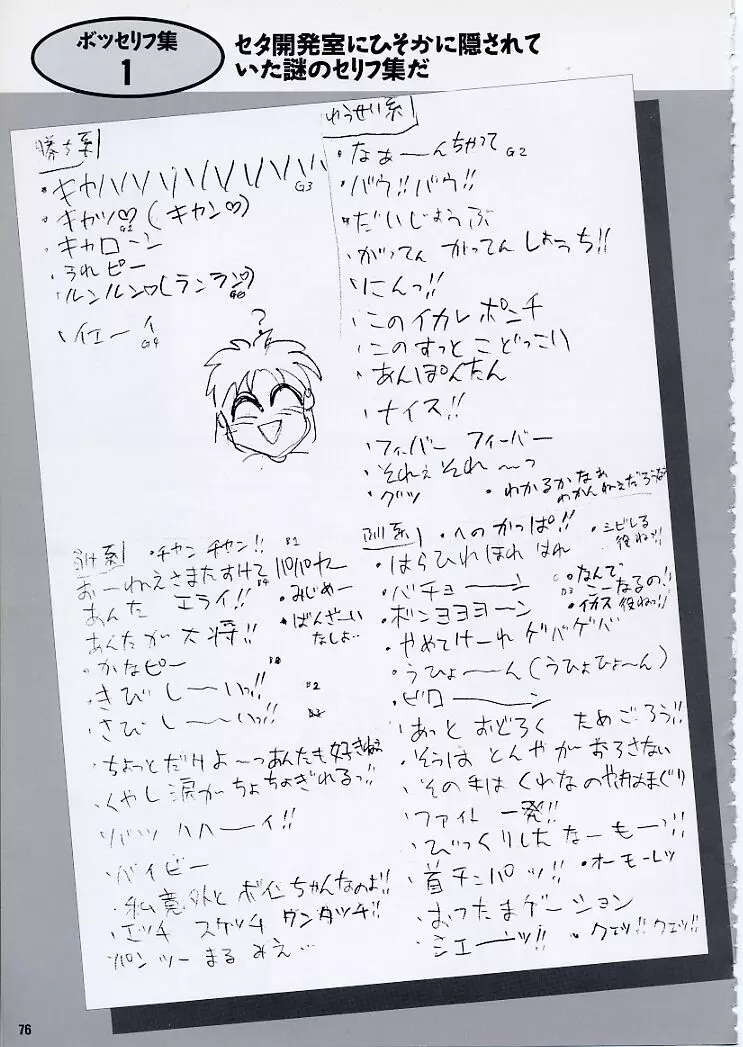 ボツセリフ集
1
セタ開発室にひそかに隠されて
いた謎のセリフ集だ
勝ち系
・キャハハハハハハハハ G3
・キャッ♡(キャン♡)
・キャローン
・うれピー
・ルンルン♡(ランラン♡)
・イエーイ G4
?
ゆうせい系
・なぁーんちゃって G2
・バウ!!バウ!!
・だいじょうぶ
・がってん がってん しょうち!!
・にんっ!!
・このイカレ ポンチ
・このすっとこどっこい
・あんぽんたん
・ナイス!!
・フィーバー フィーバー
・それぇ それ〜っ
・グッ
・わかるかなぁ
わかんねぇだろうなぁ
・チャン チャン!! B1
おーねえさまたすけて B4
あんた エライ!!
・みじめー
あんたが大将!!
・ばんざーい
なしよ…
・かなピー
・きびしーいっ!! B2
・さびしーいっ!!
・ちょっとだけよ〜っあんたも好きねぇ
・くやし涙がちょちょぎれるっ!!
・バイビー
・私意外とボインちゃんなのよ!!
・エッチ スケッチ ワンタッチ!!
パンツーまるみえ…
・へのかっぱ!!
・シビレる
役ねっ!!
・はらひれほれ はれ
・バチョーーン
・なんで
こーなるの!!
・ボンヨヨヨーン
・イカス役ねっ!!
・やめてけーれ ゲバゲバ
・うひょーーん(うひょひょーん)
・ビローーーン
・あっと おどろく ためごろう!!
・そうは とんやが おろさない
・その手は くわなの やきはまぐり
・ファイト 一発!!
・びっくりしたなーもーっ!!
・首チョンパッ!!
・オーモーレツ
・おったまゲーション
・シェーーッ!!
・クエッ!! クエッ!!
76